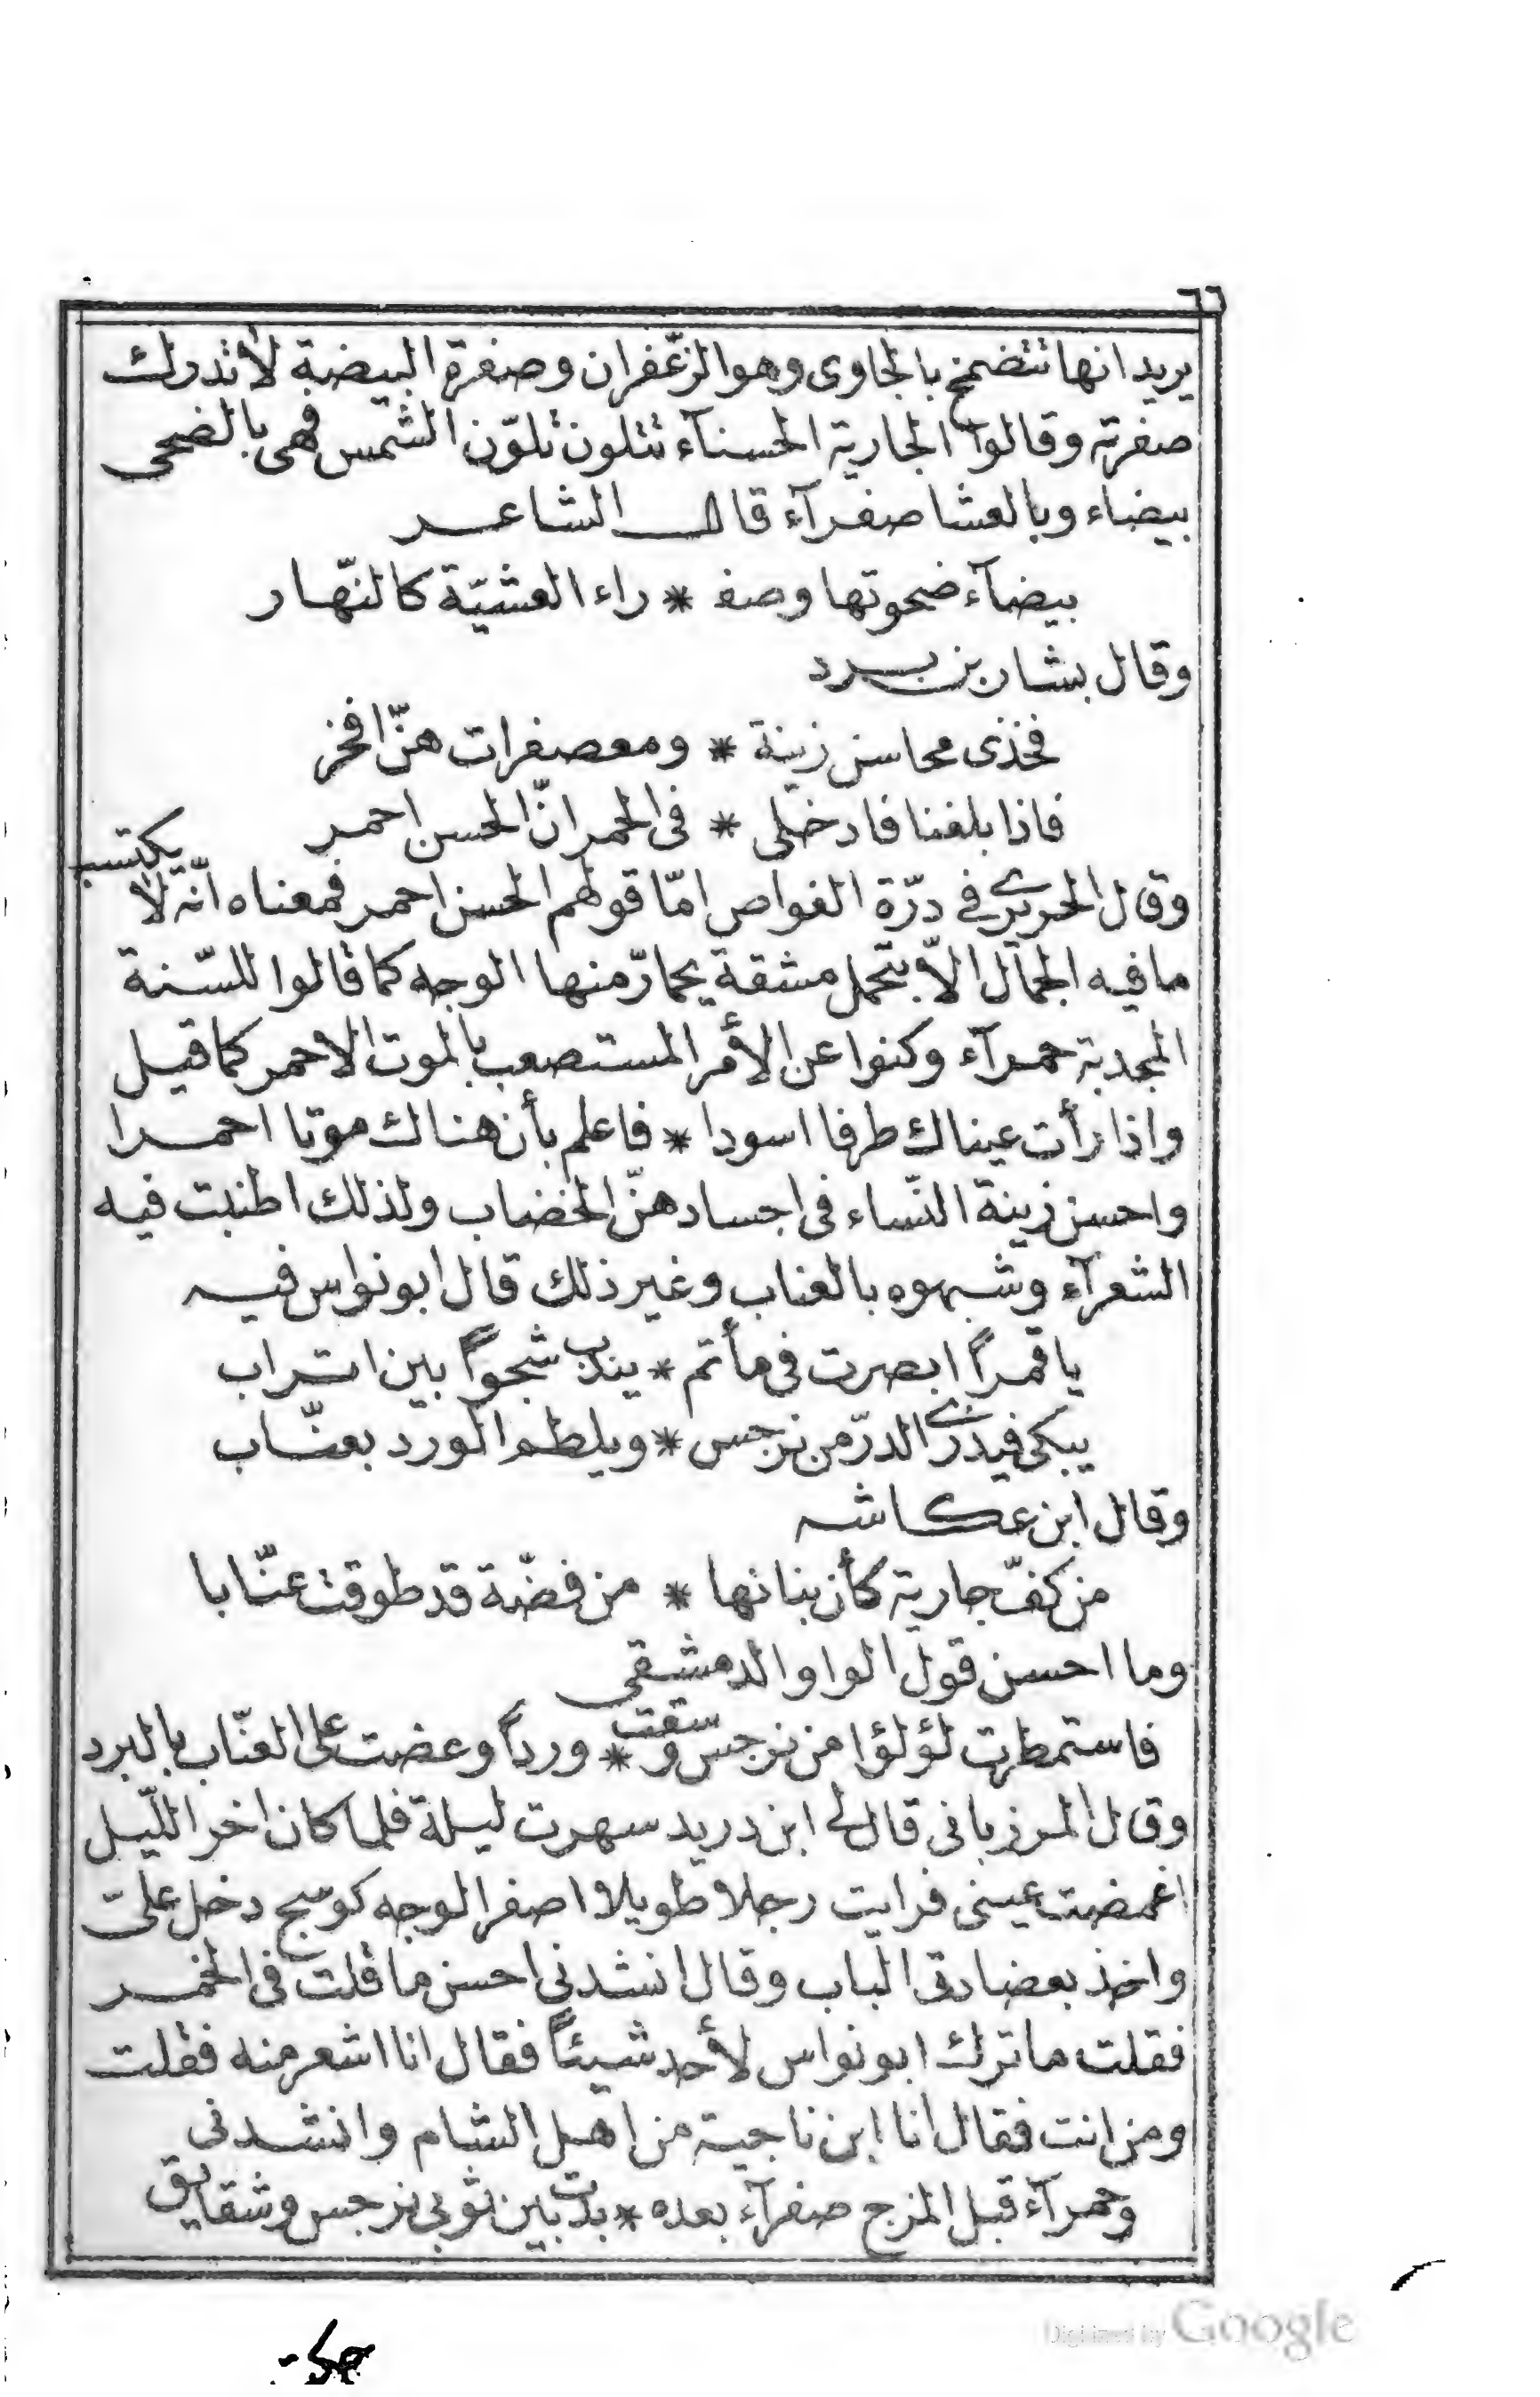 ٦٦
يريد انها تتضمخ بالجاوى وهو الزعّفران وصفرة البيضة لأتدرك
صفرته وقالوا الجارية الحسنآء تتلون تلوّن الشمس فهى بالضحى
بيضاء وبالعشا صفرآء قال الشاعر
بيضآء ضحوتها وصف * راء العشيّة كالنّهار
وقال بشار بن برد
فخذى محاسن زينة * ومعصفرات هنّ افخر
فاذا بلغنا فادخلى * فى الحمر انّ الحسن احمر
وقال الحريرى فى درّة الغواص امّا قولهم الحسن احمر فمعناه انّه لا يكتسب
ما فيه الجمال الاّ بتحمل مشقة يحمارّ منها الوجه كما قالوا للسّنة
المجدبة حمرآء وكنوا عن الأمر المستصعب بالموت الاحمر كما قيل
واذا رأت عيناك طرفا اسودا * فاعلم بأن هناك موتا احمرا
واحسن زينة النّساء فى اجسادهنّ الخضاب ولذلك اطنبت فيه
الشعرآء وشبهوه بالعناب وغير ذلك قال ابو نواس فيه
يا قمراً ابصرت فى مأتم * يندب شجواً بين اتراب
يبكى فيذرى الدرّ من نرجس * ويلطم الورد بعنّاب
وقال ابن عكاشه
من كفّ جارية كأن بنانها * من فضّة قد طوقت عنّابا
وما احسن قول الواو الدمشقى
فاستمطرت لؤلؤا من نرجس وسقت * ورداً وعضت على العنّاب بالبرد
وقال المرزبانى قال لى ابن دريد سهرت ليلة فلما كان اخر اللّيل
اغمضت عينى فرايت رجلا طويلا اصفر الوجه كوسج دخل علىّ
واخذ بعضادتى الباب وقال انشدنى احسن ما قلت فى الخمر
فقلت ما ترك ابو نواس لأحد شيئاً فقال انا اشعر منه فقلت
ومن انت فقال انا ابن ناجية من اهل الشام وانشدنى
وحمرآء قبل المزج صفرآء بعده * بدت بين ثوبى نرجس وشقايق
Digitized by Google